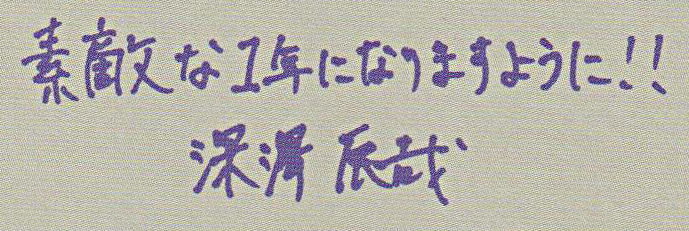 素敵な1年になりますように!!
深澤 辰哉